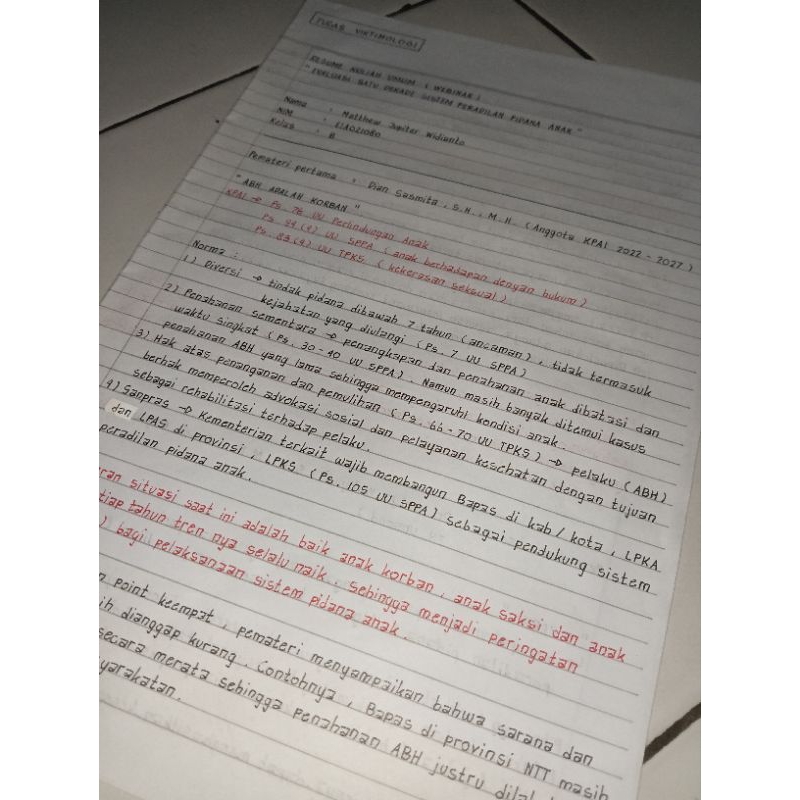 TUGAS VIKTIMOLOGI
RESUME KULIAH UMUM (WEBINAR)
"EVALUASI SATU DEKADE SISTEM PERADILAN PIDANA ANAK"
Nama : Matthew Jupiter Widianto
NIM :
Kelas : B
Pemateri pertama : Dian Sasmita, S.H., M.H. (Anggota KPAI 2022 - 2027)
"ABH ADALAH KORBAN"
KPAI → Ps. 76 UU Perlindungan Anak
Ps. 94 (4) UU SPPA (anak berhadapan dengan hukum)
Ps. 83 (4) UU TPKS (kekerasan seksual)
Norma :
1) Diversi → tindak pidana dibawah 7 tahun (ancaman), tidak termasuk
kejahatan yang diulangi (Ps. 7 UU SPPA)
2) Penahanan sementara → penangkapan dan penahanan anak dibatasi dan
waktu singkat (Ps. 30 - 40 UU SPPA). Namun masih banyak ditemui kasus
penahanan ABH yang lama sehingga mempengaruhi kondisi anak.
3) Hak atas penanganan dan pemulihan (Ps. 66 - 70 UU TPKS) → pelaku (ABH)
berhak memperoleh advokasi sosial dan pelayanan kesehatan dengan tujuan
sebagai rehabilitasi terhadap pelaku.
4) Sanpras → Kementerian terkait wajib membangun Bapas di kab/kota, LPKA
dan LPAS di provinsi, LPKS. (Ps. 105 UU SPPA) sebagai pendukung sistem
peradilan pidana anak.
situasi saat ini adalah baik anak korban, anak saksi dan anak
tiap tahun tren nya selalu naik. Sehingga menjadi peringatan
) bagi pelaksanaan sistem pidana anak.
point keempat, pemateri menyampaikan bahwa sarana dan
dianggap kurang. Contohnya, Bapas di provinsi NTT masih
secara merata sehingga penahanan ABH justru